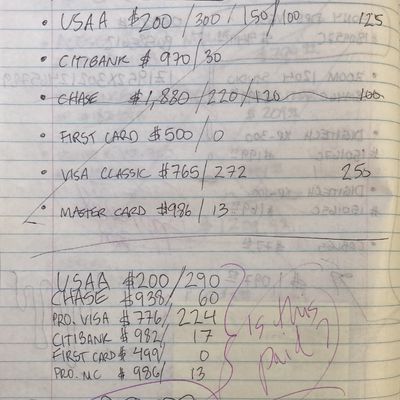 • USAA $200/300/150/100 125
• CITIBANK $970/30
• CHASE $1,880/220/120 100
• FIRST CARD $500/0
• VISA CLASSIC $765/272 255
• MASTER CARD $986/13
USAA $200/290
CHASE $938/60
PRO. VISA $776/224
CITIBANK $982/17
FIRST CARD $499/0
PRO. MC $986/13
Is this paid?